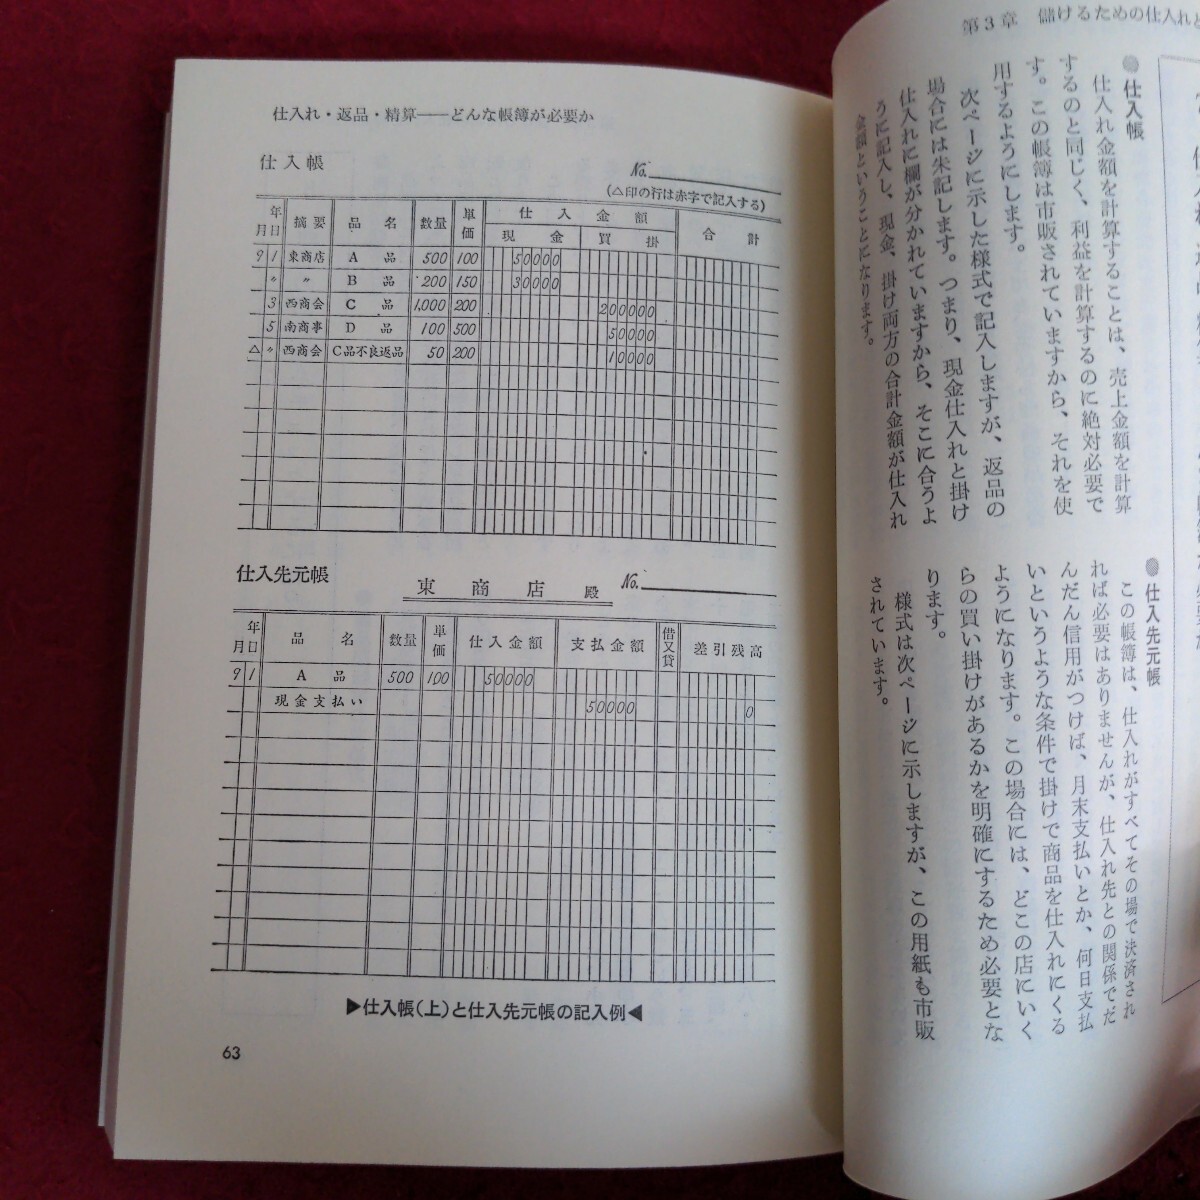 第3章 儲けるための仕入れと
●仕入帳
仕入れ金額を計算することは、売上金額を計算
するのと同じく、利益を計算するのに絶対必要で
す。この帳簿は市販されていますから、それを使
用するようにします。
次ページに示した様式で記入しますが、返品の
場合には朱記します。つまり、現金仕入れと掛け
仕入れに欄が分かれていますから、そこに合うよ
うに記入し、現金、掛け両方の合計金額が仕入れ
金額ということになります。
●仕入先元帳
この帳簿は、仕入れがすべてその場で決済され
れば必要はありませんが、仕入れ先との関係でだ
んだん信用がつけば、月末支払いとか、何日支払
いというような条件で掛けで商品を仕入れにくる
ようになります。この場合には、どこの店にいく
らの買い掛けがあるかを明確にするため必要とな
ります。
様式は次ページに示しますが、この用紙も市販
されています。
仕入れ・返品・精算——どんな帳簿が必要か
仕入帳
No.
(△印の行は赤字で記入する)
年月日 摘要 品名 数量 単価 仕入金額 現金 買掛 合計
9 1 東商店 A品 500 100 50000
〃 〃 B品 200 150 30000
3 西商会 C品 1,000 200 200000
5 南商事 D品 100 500 50000
△ 〃 西商会 C品不良返品 50 200 10000
仕入先元帳
東商店殿 No.
年月日 品名 数量 単価 仕入金額 支払金額 借又貸 差引残高
9 1 A品 500 100 50000
現金支払い 50000 0
▶仕入帳(上)と仕入先元帳の記入例◀
63